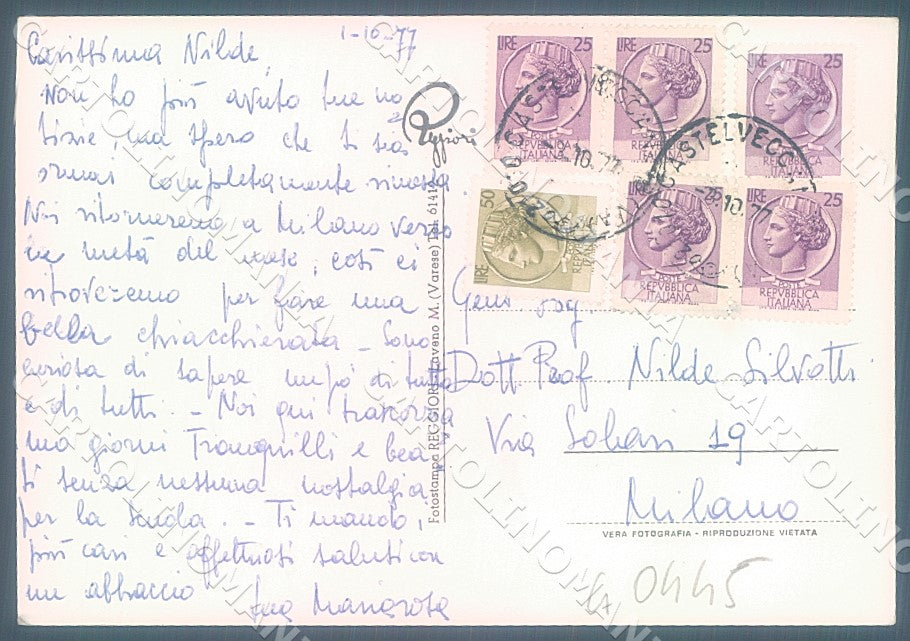 1-10-77
77
Carissima Nilde,
Non ho più avuto tue no
tizie, ma spero che ti sia
ormai completamente rimessa.
Noi ritorneremo a Milano verso
la metà del mese, così ci
ritroveremo per fare una
bella chiacchierata - Sono
curiosa di sapere un pò di tutto
e di tutti. - Noi qui trascorria
mo giorni tranquilli e bea
ti senza nessuna nostalgia
per la scuola. - Ti mando i
più cari e affettuosi saluti con
un abbraccio tua Mariarosa
Reggiori
Fotostampa REGGIORI - Laveno M. (Varese) Tel. 61412
LIRE 25
POSTE
REPVBBLICA
ITALIANA
LIRE 25
POSTE
REPVBBLICA
ITALIANA
LIRE 25
POSTE
REPVBBLICA
ITALIANA
LIRE 50
REPVBBLICA
ITALIANA
LIRE 25
POSTE
REPVBBLICA
ITALIANA
LIRE 25
POSTE
REPVBBLICA
ITALIANA
CASTELVECC
10.77
10.77
Gent. Sig.
Dott Prof. Nilde Silvotti
Via 19
Milano
VERA FOTOGRAFIA - RIPRODUZIONE VIETATA
0445
CARTOLINOMANIA